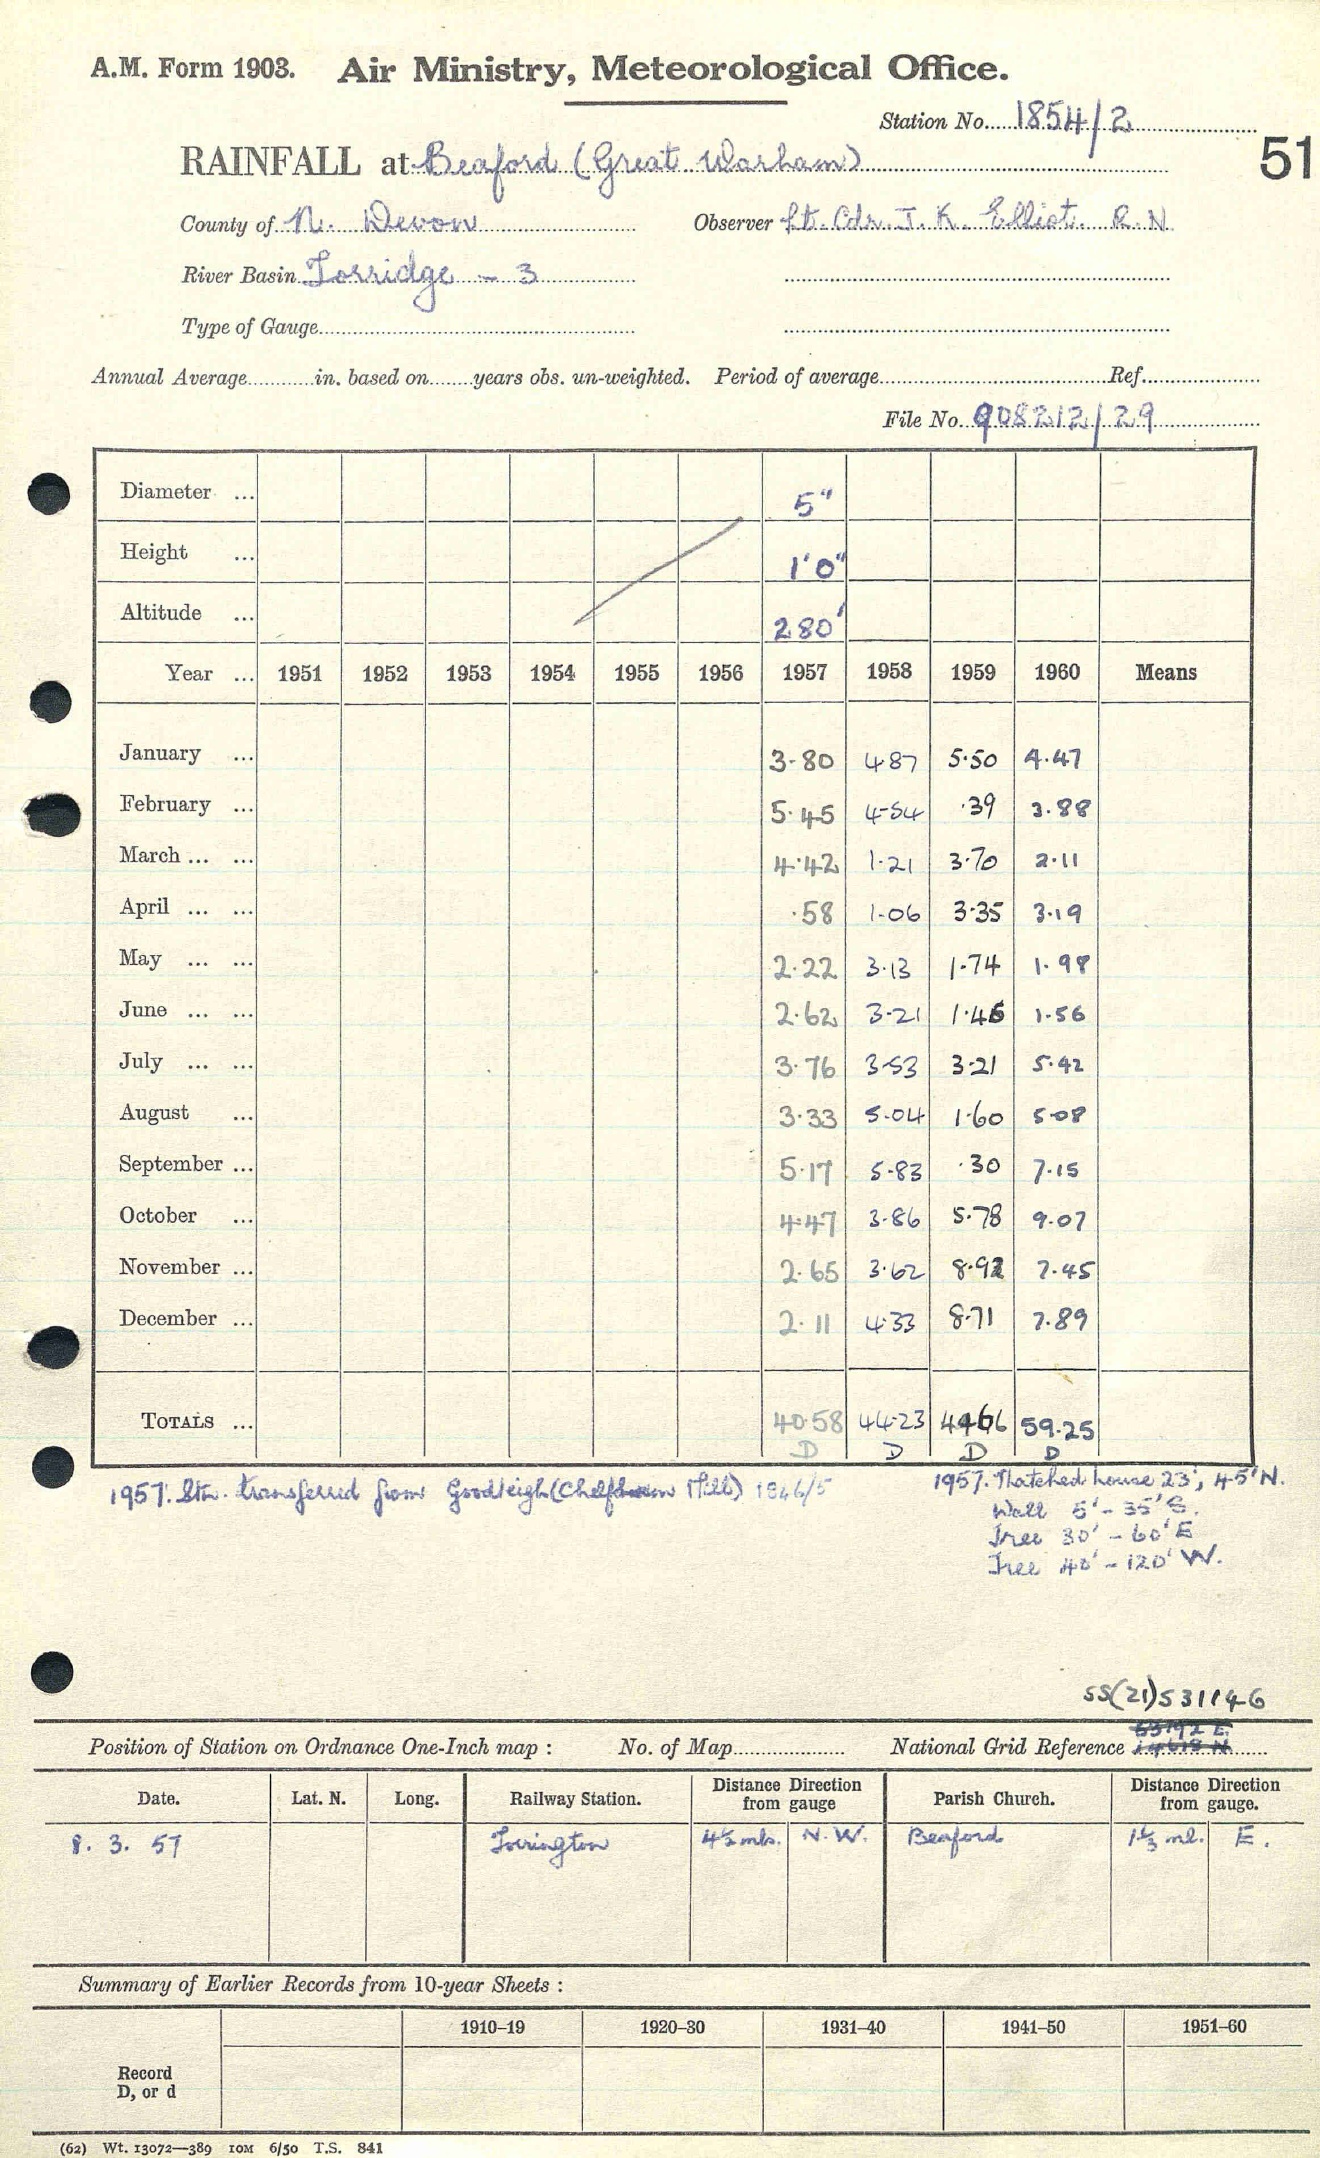 A.M. Form 1903. Air Ministry, Meteorological Office.
Station No. 1854/2
51
RAINFALL at Beaford (Great Warham)
County of N. Devon Observer Lt. Cdr. J. K. Elliot. R.N.
River Basin Torridge - 3
Type of Gauge
Annual Average in. based on years obs. un-weighted. Period of average Ref.
File No. 908212/29
Diameter ... 5"
Height ... 1'0"
Altitude ... 280'
Year ... 1951 1952 1953 1954 1955 1956 1957 1958 1959 1960 Means
January ... 3.80 4.87 5.50 4.47
February ... 5.45 4.54 .39 3.88
March ... ... 4.42 1.21 3.70 2.11
April ... ... .58 1.06 3.35 3.19
May ... ... 2.22 3.13 1.74 1.98
June ... ... 2.62 3.21 1.46 1.56
July ... ... 3.76 3.53 3.21 5.42
August ... 3.33 5.04 1.60 5.08
September ... 5.17 5.83 .30 7.15
October ... 4.47 3.86 5.78 9.07
November ... 2.65 3.62 8.92 7.45
December ... 2.11 4.33 8.71 7.89
TOTALS ... 40.58 44.23 44.66 59.25
D D D D
1957. Stn. transferred from Goodleigh (Chelfham Mill) 1846/5
1957. Thatched house 23', 45' N.
Wall 5' - 35' S.
Tree 30' - 60' E
Tree 40' - 120' W.
SS(21)531146
Position of Station on Ordnance One-Inch map : No. of Map National Grid Reference
Date. Lat. N. Long. Railway Station. Distance from gauge Direction Parish Church. Distance Direction from gauge.
8. 3. 57 Torrington 4½ mls. N.W. Beaford 1⅓ ml. E.
Summary of Earlier Records from 10-year Sheets :
1910–19 1920–30 1931–40 1941–50 1951–60
Record
D, or d
(62) Wt. 13072—389 10M 6/50 T.S. 841